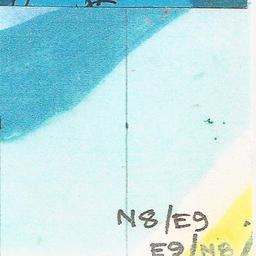 N8/E9
E9/N8/